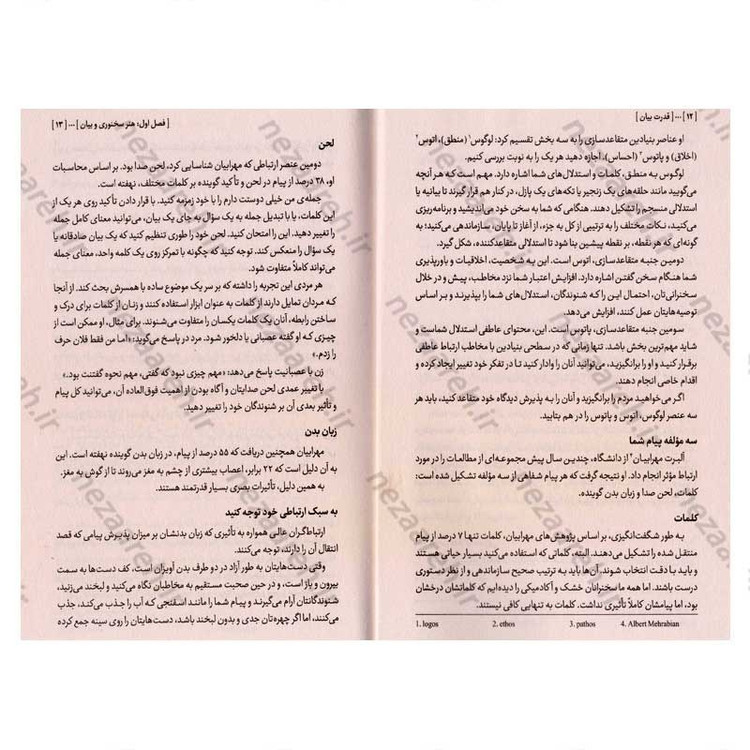 [ ۱۲ ] ... [ قدرت بیان ]
او عناصر بنیادین متقاعدسازی را به سه بخش تقسیم کرد: لوگوس۱ (منطق)، اتوس۲
(اخلاق) و پاتوس۳ (احساس). اجازه دهید هر یک را به نوبت بررسی کنیم.
لوگوس به منطق، کلمات و استدلال‌های شما اشاره دارد. مهم است که هر آنچه
می‌گویید مانند حلقه‌های یک زنجیر یا تکه های یک پازل، در کنار هم قرار گیرند تا بیانیه یا
استدلالی منسجم را تشکیل دهند. هنگامی که شما به سخن خود می‌اندیشید و برنامه‌ریزی
می‌کنید، نکات مختلف را به ترتیبی از کل به جزء، از آغاز تا پایان، سازماندهی می‌کنید؛ به
گونه‌ای که هر نقطه، بر نقطه پیشین بنا شود تا استدلالی متقاعدکننده، شکل گیرد.
دومین جنبه متقاعدسازی، اتوس است. این به شخصیت، اخلاقیات و باورپذیری
شما هنگام سخن گفتن اشاره دارد. افزایش اعتبار شما نزد مخاطب، پیش و در خلال
سخنرانی‌تان، احتمال این را که شنوندگان، استدلال‌های شما را بپذیرند و بر اساس
توصیه‌هایتان عمل کنند، افزایش می‌دهد.
سومین جنبه متقاعدسازی، پاتوس است. این، محتوای عاطفی استدلال شماست و
شاید مهم‌ترین بخش باشد. تنها زمانی که در سطحی بنیادین با مخاطب ارتباط عاطفی
برقرار کنید و او را برانگیزید، می‌توانید آنان را وادار کنید تا در تفکر خود تغییر ایجاد کرده و
اقدام خاصی انجام دهند.
اگر می‌خواهید مردم را برانگیزید و آنان را به پذیرش دیدگاه خود متقاعد کنید، باید هر
سه عنصر لوگوس، اتوس و پاتوس را در هم بتابید.
سه مؤلفه پیام شما
آلبرت مهرابیان۴ از دانشگاه، چندین سال پیش مجموعه‌ای از مطالعات را در مورد
ارتباط مؤثر انجام داد. او نتیجه گرفت که هر پیام شفاهی از سه مؤلفه تشکیل شده است:
کلمات، لحن صدا و زبان بدن گوینده.
کلمات
به طور شگفت‌انگیزی، بر اساس پژوهش‌های مهرابیان، کلمات تنها ۷ درصد از پیام
منتقل شده را تشکیل می‌دهند. البته، کلماتی که استفاده می‌کنید بسیار حیاتی هستند
و باید با دقت انتخاب شوند. آن‌ها باید به ترتیب صحیح سازماندهی و از نظر دستوری
درست باشند. اما همه ما سخنرانان خشک و آکادمیکی را دیده‌ایم که کلماتشان درخشان
بود، اما پیامشان کاملاً تأثیری نداشت. کلمات به تنهایی کافی نیستند.
1. logos 2. ethos 3. pathos 4. Albert Mehrabian
[ فصل اول: هنر سخنوری و بیان ] ... [ ۱۳ ]
لحن
دومین عنصر ارتباطی که مهرابیان شناسایی کرد، لحن صدا بود. بر اساس محاسبات
او، ۳۸ درصد از پیام در لحن و تأکید گوینده بر کلمات مختلف، نهفته است.
جمله‌ی من خیلی دوستت دارم را با خود زمزمه کنید. با قرار دادن تأکید روی هر یک از
این کلمات، یا با تبدیل جمله به یک سؤال به جای یک بیان، می‌توانید معنای کامل جمله
را تغییر دهید. این را امتحان کنید. لحن خود را طوری تنظیم کنید که یک بیان صادقانه یا
یک سؤال را منعکس کند. توجه کنید که چگونه با تمرکز روی یک کلمه واحد، معنای جمله
می‌تواند کاملاً متفاوت شود.
هر مردی این تجربه را داشته که بر سر یک موضوع ساده با همسرش بحث کند. از آنجا
که مردان تمایل دارند از کلمات به عنوان ابزار استفاده کنند و زنان از کلمات برای درک و
ساختن رابطه، آنان یک کلمات یکسان را متفاوت می‌شنوند. برای مثال، او ممکن است از
چیزی که او گفته عصبانی یا دلخور شود. مرد در پاسخ می‌گوید: «اما من فقط فلان حرف
را زدم.»
زن با عصبانیت پاسخ می‌دهد: «مهم چیزی نبود که گفتی، مهم نحوه گفتنت بود.»
با تغییر عمدی لحن صدایتان و آگاه بودن از اهمیت فوق‌العاده آن، می‌توانید کل پیام
و تأثیر بعدی آن بر شنوندگان خود را تغییر دهید.
زبان بدن
مهرابیان همچنین دریافت که ۵۵ درصد از پیام، در زبان بدن گوینده نهفته است. این
به آن دلیل است که ۲۲ برابر، اعصاب بیشتری از چشم به مغز می‌روند تا از گوش به مغز.
به همین دلیل، تأثیرات بصری بسیار قدرتمند هستند.
به سبک ارتباطی خود توجه کنید
ارتباطگران عالی همواره به تأثیری که زبان بدنشان بر میزان پذیرش پیامی که قصد
انتقال آن را دارند، توجه می‌کنند.
وقتی دست‌هایتان به طور آزاد در دو طرف بدن آویزان است، کف دست‌ها به سمت
بیرون و باز است، و در حین صحبت مستقیم به مخاطبان نگاه می‌کنید و لبخند می‌زنید،
شنوندگانتان آرام می‌گیرند و پیام شما را مانند اسفنجی که آب را جذب می‌کند، جذب
می‌کنند. اما اگر چهره‌تان جدی و بدون لبخند باشد، دست‌هایتان را روی سینه جمع کرده
nezaareh.ir